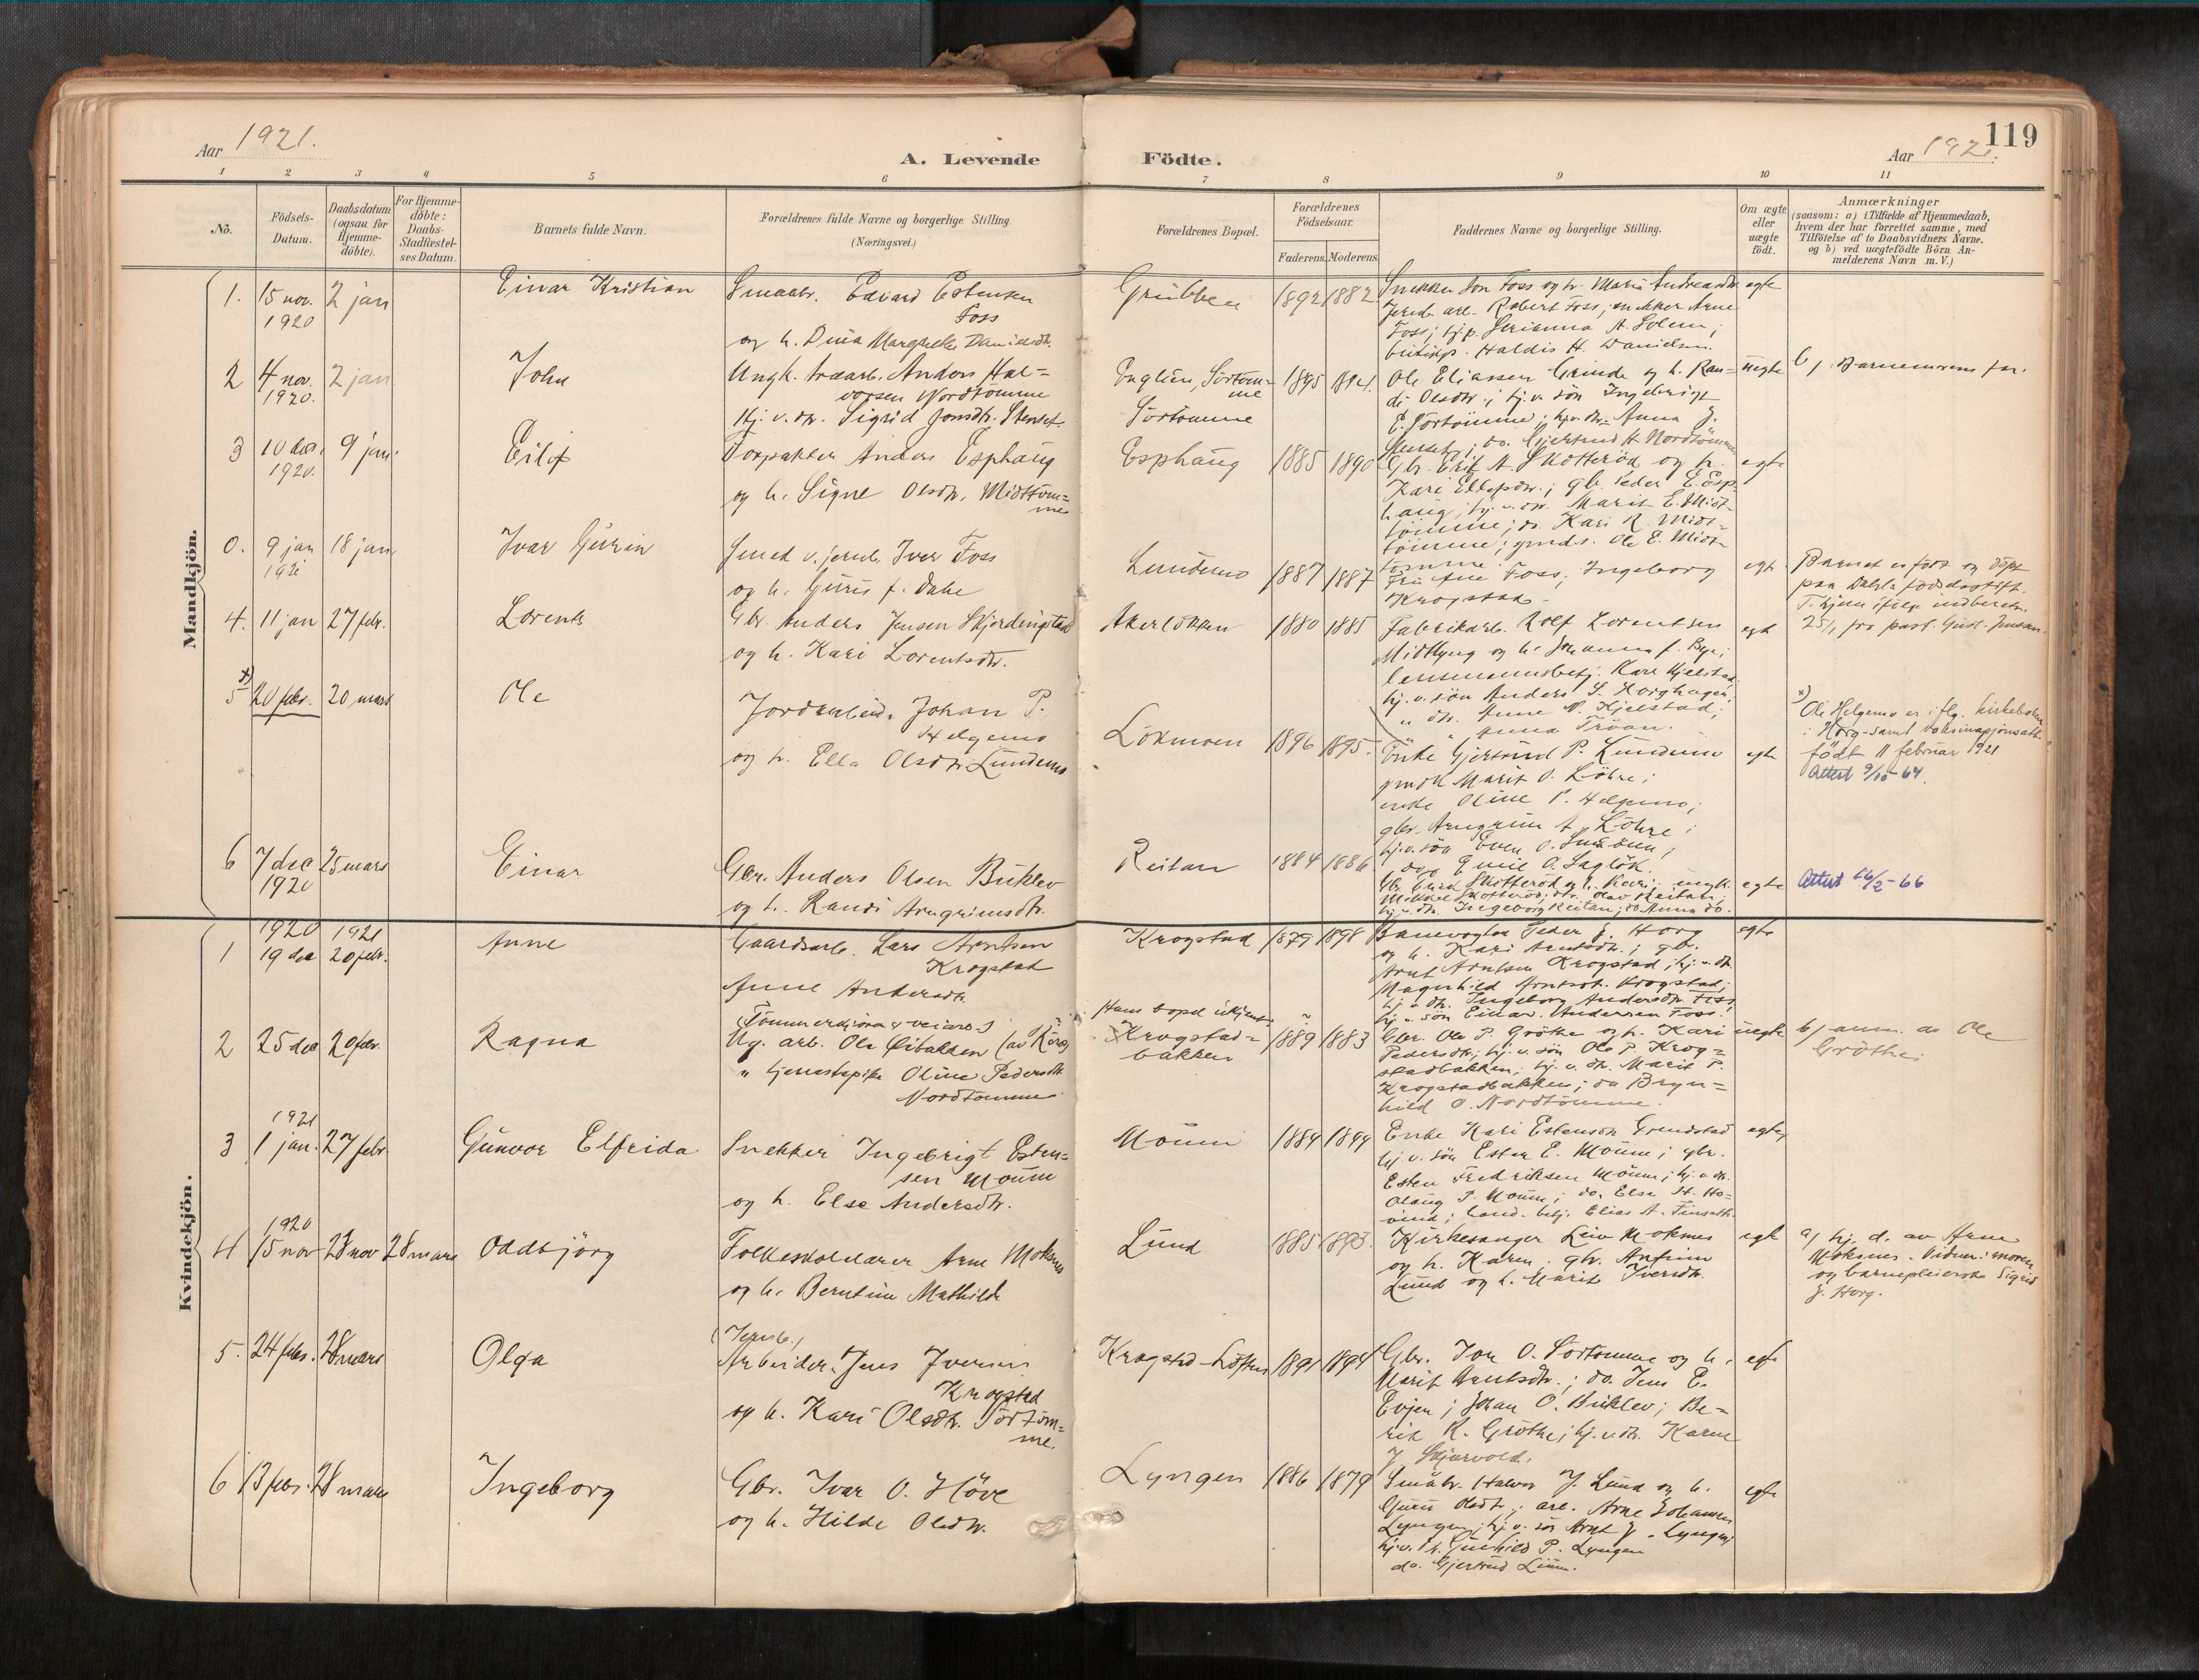 119
Aar 1921.
A. Levende Födte.
Aar 1921.
1 2 3 4 5 6 7 8 9 10 11
No.
Födsels-Datum.
Daabsdatum (ogsaa for Hjemme-döbte).
For Hjemme-döbte: Daabs-Stadfæstel-ses Datum.
Barnets fulde Navn.
Forældrenes fulde Navne og borgerlige Stilling. (Næringsvei.)
Forældrenes Bopæl.
Forældrenes Födselsaar.
Faderens. Moderens.
Faddernes Navne og borgerlige Stilling.
Om ægte eller uægte födt.
Anmærkninger
(saasom: a) i Tilfælde af Hjemmedaab,
hvem der har forrettet samme, med
Tilföielse af to Daabsvidners Navne,
og b) ved uægtefödte Börn An-
melderens Navn m. V.)
Mandkjön.
1. 15 nov. 1920
2 jan
Einar Kristian
Smaabr. Edvard Estensen
Foss
og h. Dina Margrethe Danielsdtr.
Grubben
1892 1882
Foss og h. Maria Andreasdtr.
Robert Foss, snekker Arne
Foss;
Haldis H. Danielsen.
egte
2 4 nov. 1920.
2 jan
John
Ungk. træarb. Anders Hal=
vorsen Nordtömme
Hj. v. dtr. Sigrid Jonsdtr. Stenset.
Englien, Sörtöm=
me
Sörtömme
1895 1894.
Ole Eliassen Grinde og h. Ran=
di Olsdtr.; hj. v. sön Ingebrigt
E. Sörtömme; hj. v. dtr. Anna J.
Stenset; do. Gjertrud H. Nordtömme
uegte
b) Barnemorens far.
3 10 des. 1920.
9 jan.
Eilif
Forpakter Anders Esphaug
og h. Signe Olsdtr. Midttöm=
me
Esphaug
1885 1890
Gbr. Erik A. Skotteröd og h.
Kari Ellefsdtr.; gbr. Peder E. Esp=
haug; hj. v. dtr. Marit E. Midt-
tömme; do. Kari R. Midt-
tömme; gmds. Ole E. Midt-
tömme.
egte
0. 9 jan 1921
18 jan.
Ivar Gurin
Smed v. jernb. Iver Foss
og h. Guru f. Dahe
Lundemo
1887 1887
Fru Ane Foss; Ingeborg
Krogstad.
egte
Barnet er født og döpt
paa Dahls fødselsstift.
T.hjem ifølge indberetn.
25/1 fra past. Gust. Jensen.
4. 11 jan
27 febr.
Lorents
Gbr. Anders Jensen Skjerdingstad
og h. Kari Lorentsdtr.
Akerløkken
1880 1885
Fabrikarb. Rolf Lorentsen
Midtlyng og h. Johanna f. Bye;
lensmannsbetj. Kare Kjelstad
hj. v. sön Anders S. Horghagen;
" dtr. Anne N. Kjelstad;
" Anna Tröan.
egte
x) 5 20 febr.
20 mars
Ole
Jordarbeid. Johan P.
Helgemo
og h. Ella Olsdtr. Lundemo
Lökmoen
1896 1895.
Enke Gjertrud P. Lundemo
gmdk Marit O. Löhre;
enke Oline P. Helgemo;
gbr. Arngrim A. Löhre;
hj. v. sön Even O.
do. Emil O.
egte
x) Ole Helgemo er iflg. kirkeboken
i Horg-samt vaksinasjonsatt.
födt 11 februar 1921
Attest 9/10-64.
6 7 dec 1920
25 mars
Einar
Gbr. Anders Olsen Buklev
og h. Randi Arngrimsdtr.
Reitan
1884 1886
Gbr. Erik Skotteröd og h. Kari; ungk.
Mikkel Skotteröd; do. Olav Reitan;
hj. v. dtr. Ingeborg Reitan; do. Anna do.
egte
Attest 16/2-66
Kvindekjön.
1 1920 19 dec
1921 20 febr.
Anne
Gaardsarb. Lars Arntsen
Krogstad
Anne Andersdtr.
Krogstad
1879 1898
Banevogter Peder J. Horg
og h. Kari Arntsdtr.; gbr.
Arnt Arntsen Krogstad; hj. v. dtr.
Magnhild Arntsdt. Krogstad;
hj. v. dtr. Ingeborg Andersdtr. Foss
hj. v. sön Einar Andersen Foss.
egte
2 25 dec
20 febr.
Ragna
(Tömmerkjörer & veiarb.)
Ug. arb. Ole Öibakken (av Röros)
" tjenestepike Oline Pedersdtr
Nordtömme
Hans bopel ukjent.
Krogstad=
bakken
? 1889 1883
Gbr. Ole P. Gröthe og h. Kari
Pedersdtr.; hj. v. sön Ole P. Krog=
stadbakken; hj. v. dtr. Marit P.
Krogstadbakken; do Bryn=
hild O. Nordtömme.
uegte
b) anm. av Ole
Gröthe.
3 1921 1 jan.
27 febr.
Gunvor Elfrida
Snekker Ingebrigt Esten=
sen Moum
og h. Else Andersdtr.
Moum
1884 1899
Enke Kari Estensdtr Grendstad
hj. v. sön Esten E. Moum; gbr.
Esten Fredriksen Moum; hj. v. dtr.
Olaug P. Moum; do. Else H. Ho=
vind; hand. betj. Elias A.
egte
4 1920 15 nov
28 nov
28 mars
Oddbjörg
Folkeskolelærer Arne Moksnes
og h. Berntine Mathilde
Lund
1885 1893.
Kirkesanger Leiv Moksnes
og h. Karen, gbr. Anfinn
Lund og h. Marit Iversdtr.
egte
a) hj. d. av Arne
Moksnes. Vidner: moren
og barnepleierske Sigrid
J. Horg.
5. 24 febr.
28 mars
Olga
(Jernb.)
Arbeider Jens Iversen
Krogstad
og h. Kari Olsdtr. Sörtöm=
me.
Krogstad-Löften
1891 1894
Gbr. Ivar O. Sörtömme og h.
Marit Arntsdtr.; do. Jens E.
Evjen; Johan O. Buklev; Be=
rit K. Gröthe; hj. v. dtr. Karen
J. Skjervold.
egte
6 13 febr.
28 mars
Ingeborg
Gbr. Ivar O. Höve
og h. Hilde Olsdtr.
Lyngen
1886 1879
Småbr. Halvor J. Lund og h.
Guru Olsdt.; arb. Arne Johansen
Lyngen; hj. v. sön Arnt J. Lyngen;
hj. v. dt. Gunhild P. Lyngen
do. Gjertrud Lium.
egte